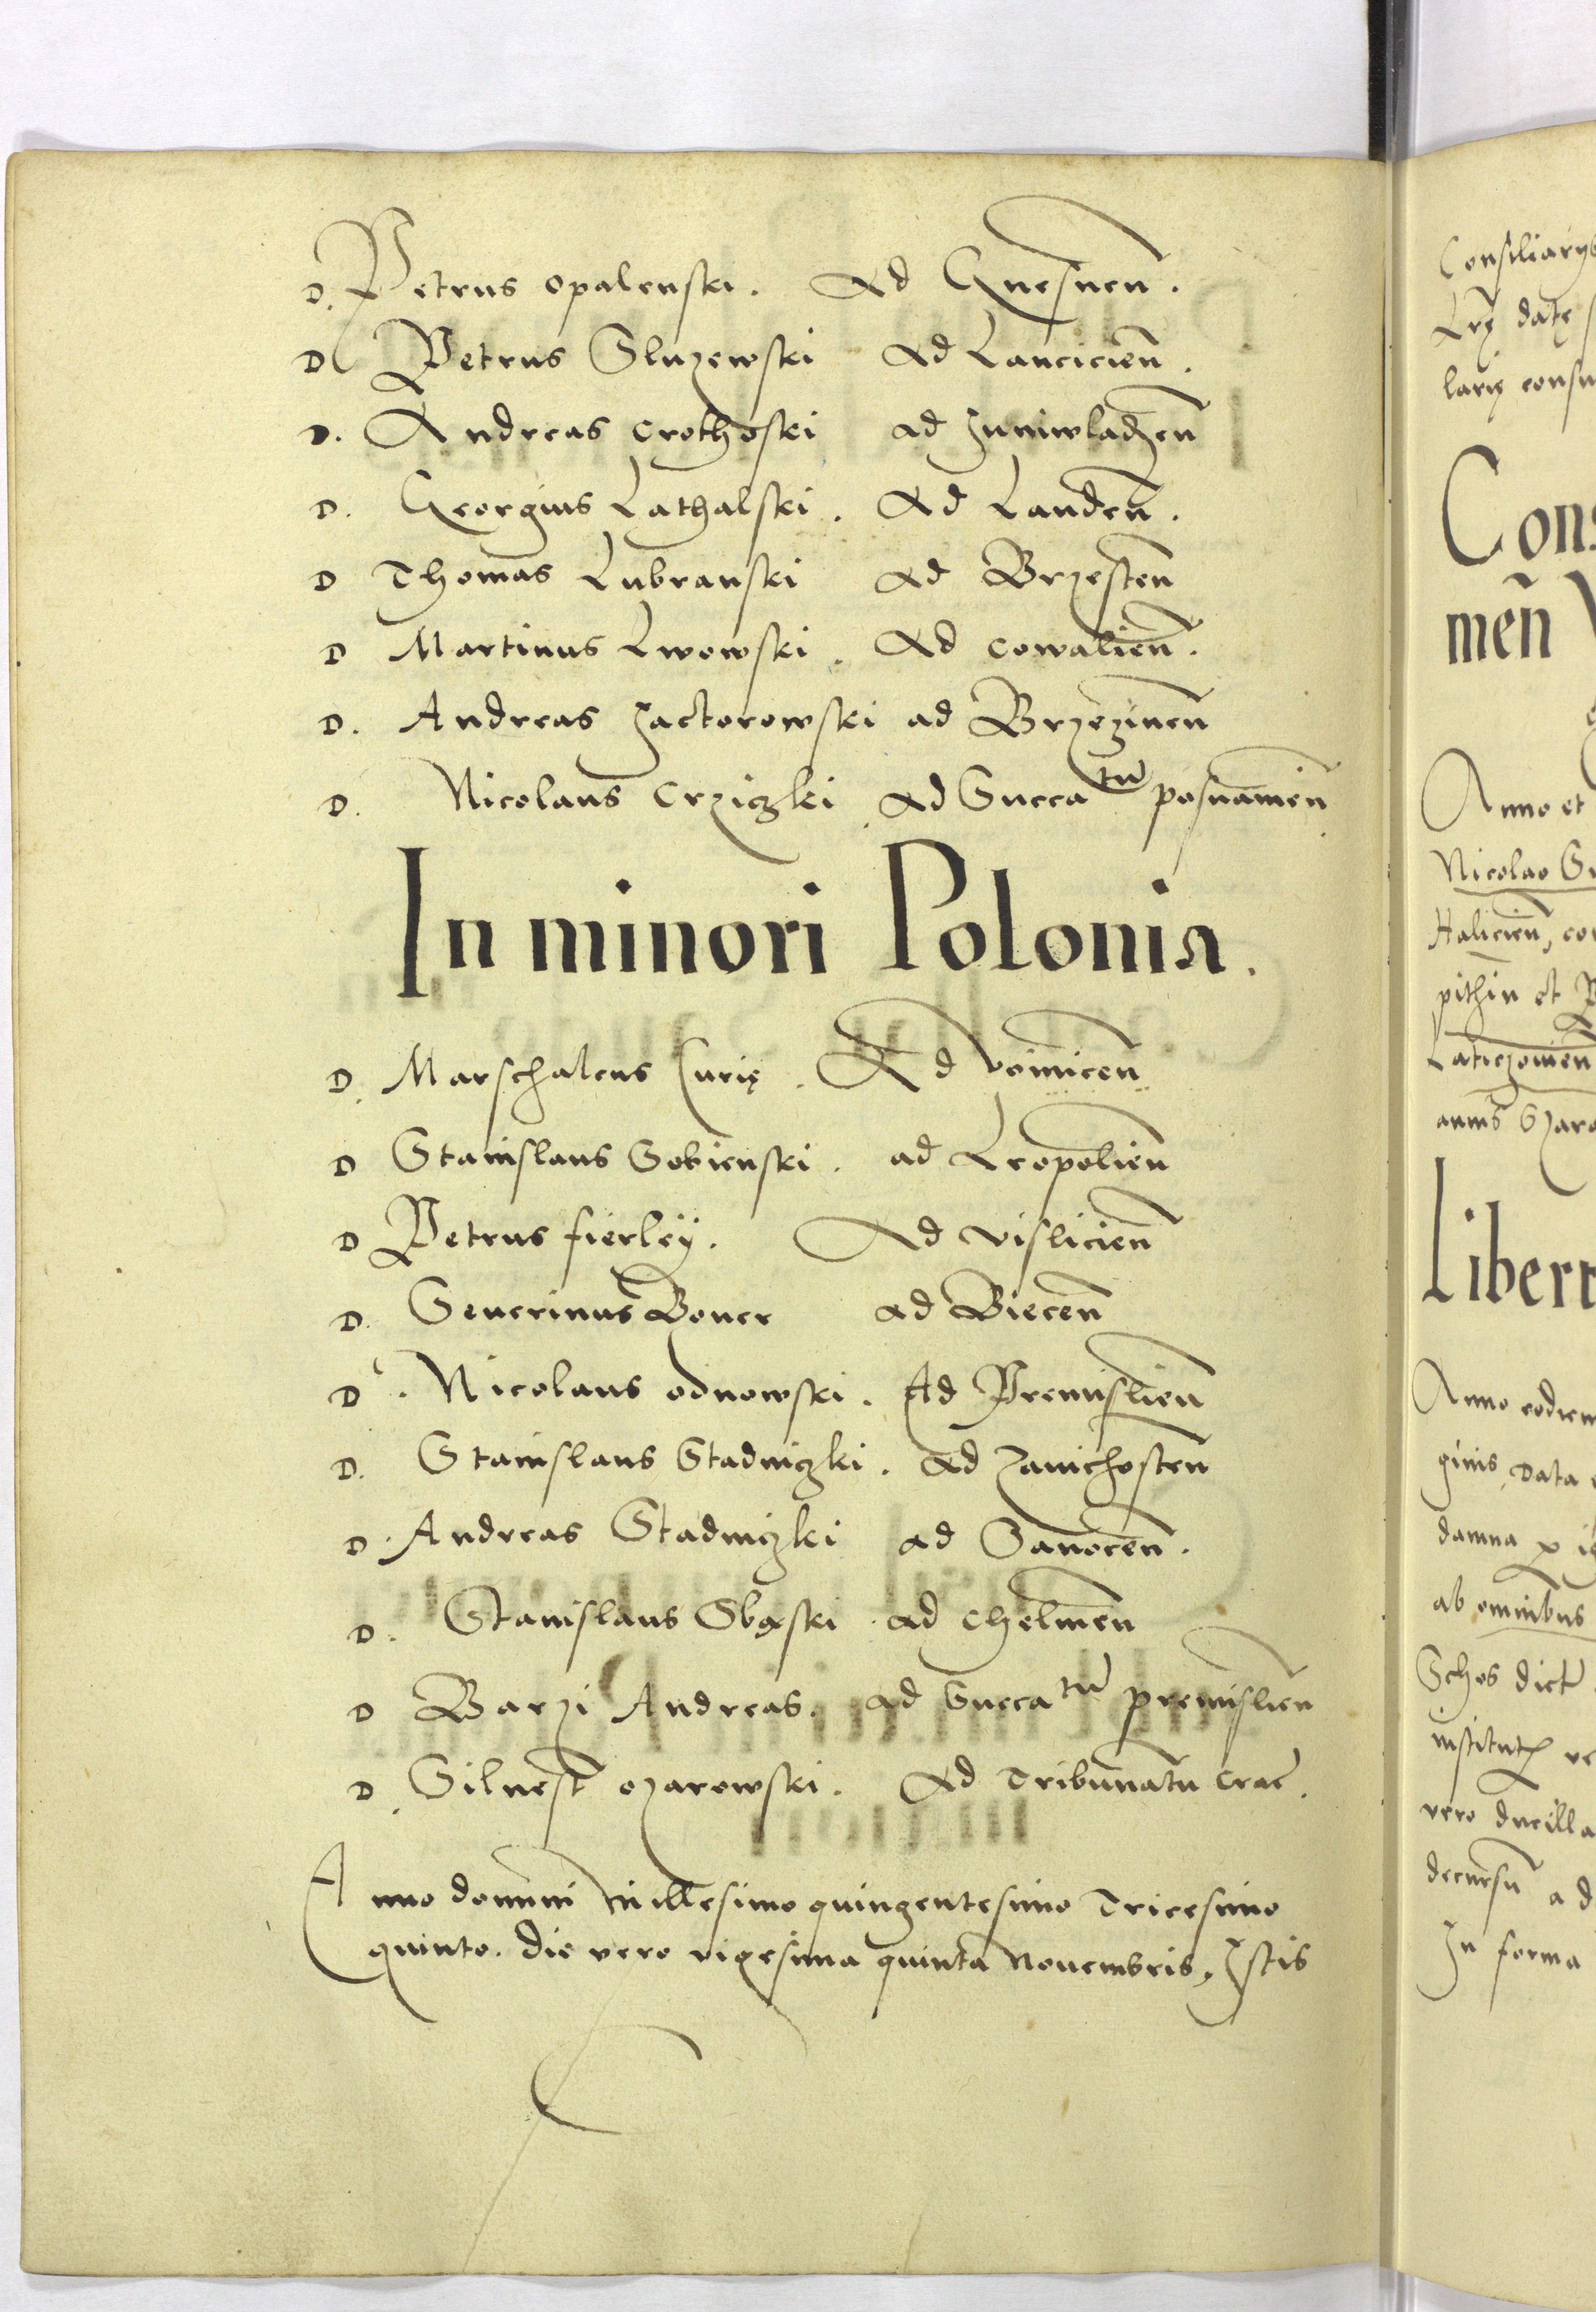 D. Petrus Opalenski. Ad Gnesnen.
D Petrus Sluzewski Ad Lancicien̄.
D. Andreas Crothoski ad Juniwladzen̄
D. Georgius Lathalski. Ad Landen̄.
D Thomas Lubranski Ad Brzesten̄
D Martinus Lwowski. Ad Cowalien̄.
D. Andreas Zactorowski ad Brzezinen̄
D. Nicolaus Crziczki ad Succatū posnanien̄
In minori Polonia.
D. Marschalcus Curię. Ad Voinicen̄
D Stanislaus Sobienski. ad Leopolien̄
D Petrus fierleÿ. Ad vislicien̄
D. Seuerinus Boner ad Biecen̄
D. Nicolaus odnowski. Ad Premislien̄
D. Stanislaus Stadniczki. ad Zanichosten̄
D. Andreas Stadniczki ad Sanocen̄.
D. Stanislaus Sbąski ad Chelmen̄
D Barzi Andreas. ad Succatū premislien̄
D. Siluest ozarowski. Ad Tribunatū Crac̄.
Anno domini Millesimo quingentesimo Tricesimo
quinto. Die vero vigesima quinta Nouembris, Istis
Consiliarÿs
datę
larię
Cons
men̄
Anno et
Nicolao
Halicien̄,
et
Laticzouien̄
Libert
Anno eodem
Data
damna
ab omnibus
vero
a
In forma